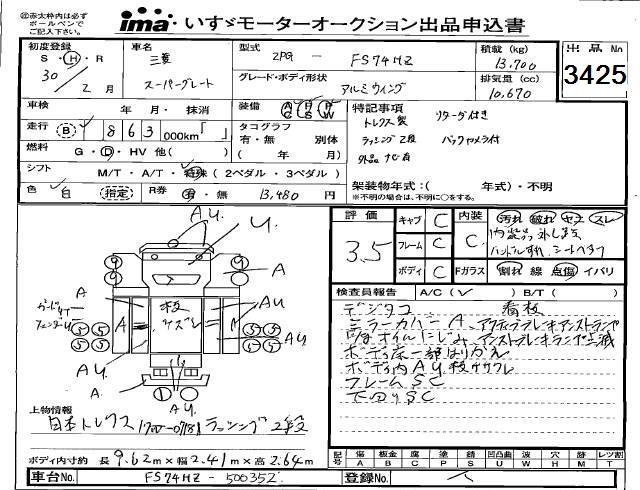 ㊟赤太枠内は必ず
ボールペンで
ご記入下さい。
ima いすゞモーターオークション出品申込書
初度登録
S・H・R
30 / 2月
車名
三菱
スーパーグレート
型式
2PG - FS74HZ
グレード・ボディ形状
アルミウイング
積載量 (kg)
13,700
排気量 (cc)
10,670
出品No
3425
車検 年・月・抹消
装備 A/C P/S P/W
走行 B 863 000km「」
タコグラフ
有・無 別体
( 年 月)
燃料 G・D・HV 他( )
シフト M/T・A/T・特殊(2ペダル・3ペダル)
色 白 指定 R券 有・無 13,480円
特記事項
トレクス製 リターダ付き
ラッシング2段 バックカメラ付
外品ナビ有
架装物年式:( 年式)・不明
※不明の場合は、不明に○をする。
評価 3.5
キャブ C
フレーム C
ボディ C
内装 C
汚れ 破れ ヤケ スレ
ハンドルすれ、シートヘタリ
Fガラス 割れ 線 点傷 イバリ
検査員報告 A/C(レ) B/T( )
デジタコ 看板
ミラーカバーA、
ボディ床一部はりかえ
ボディ内AU
フレームSC
下回りSC
AU
U
A
A
9
9
9
9
AU
AU
A
板
5
5
5
5
5
5
5
5
AU
A
A
1
1
AU
上物情報
日本トレクス ラッシング2段
ボディ内寸約 長9.62m×幅2.41m×高2.64m
記号 傷 板金 腐 塗 サビ 凹凸曲 波 穴 跡 レツ割
A B C P S U W H M T
車台No. FS74HZ-500352
登録No.